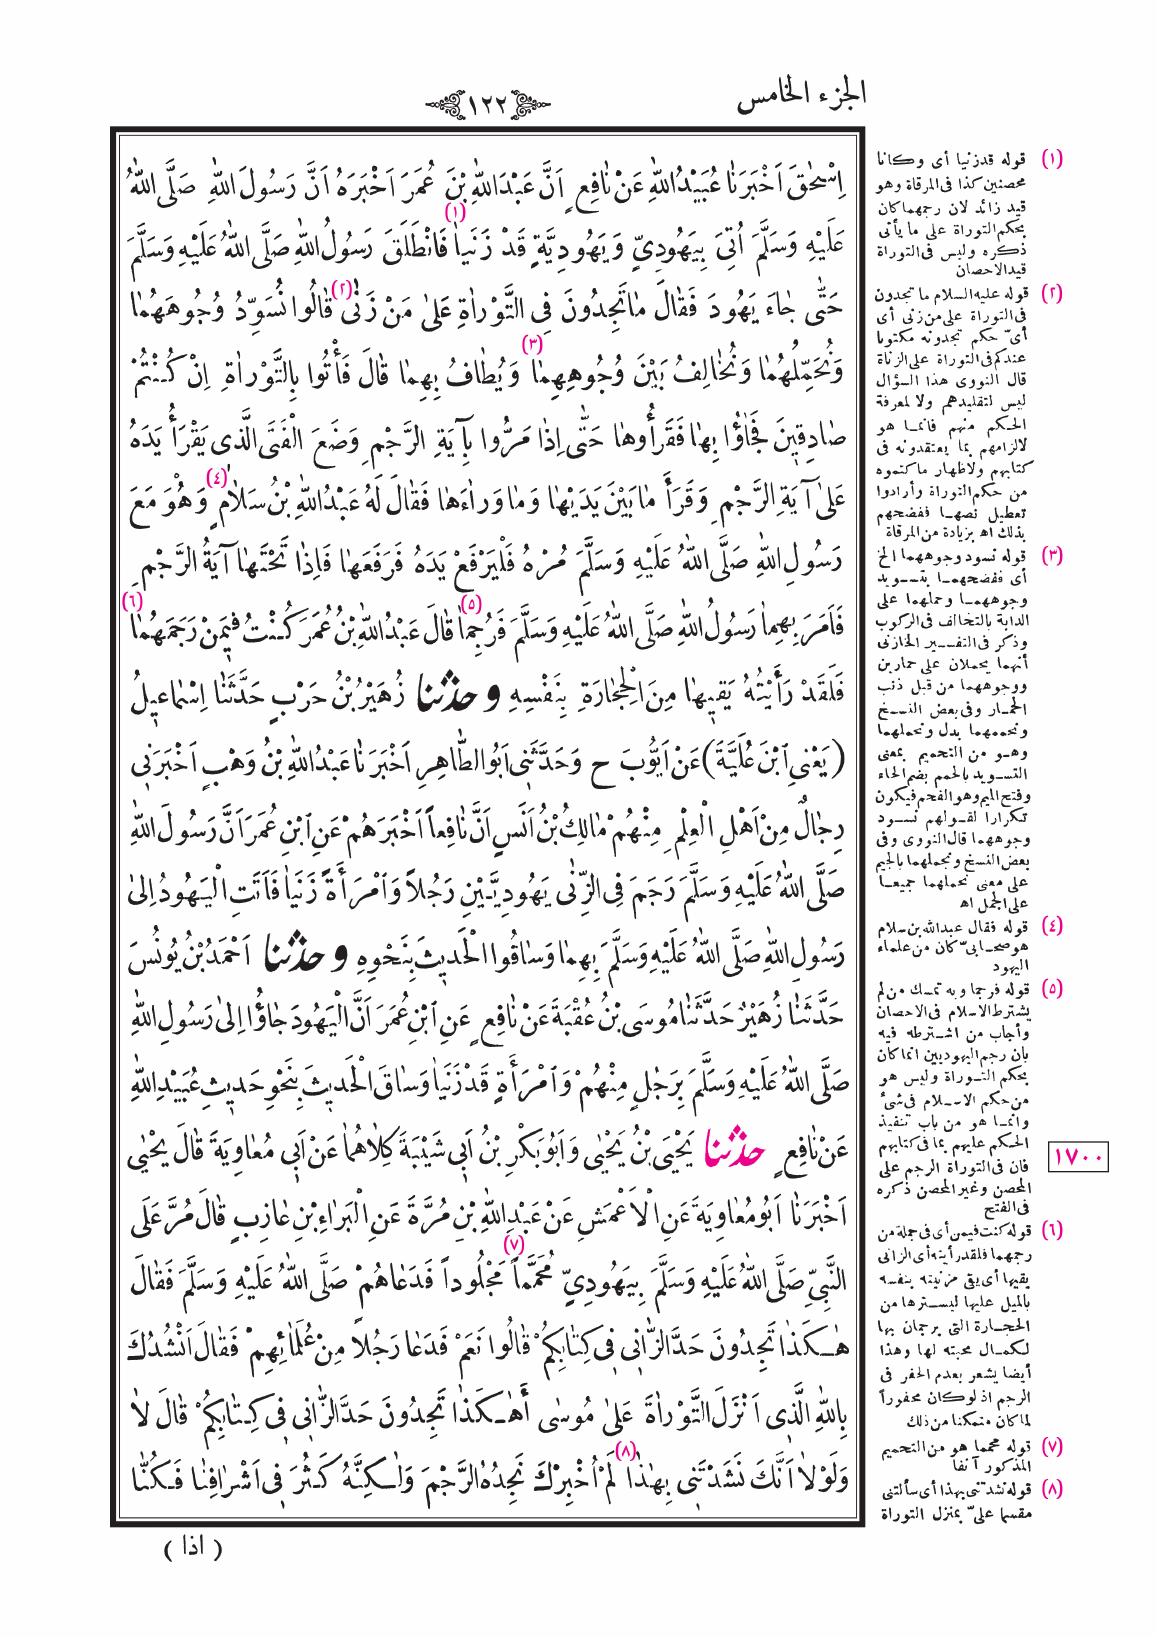 الجزء الخامس
١٢٢
اِسْحٰقَ اَخْبَرَنَا عُبَيْدُاللّٰهِ عَنْ نٰافِعٍ اَنَّ عَبْدَاللّٰهِ بْنَ عُمَرَ اَخْبَرَهُ اَنَّ رَسُولَ اللّٰهِ صَلَّى اللّٰهُ
عَلَيْهِ وَسَلَّمَ اُتِيَ بِيَهُودِيٍّ وَيَهُودِيَّةٍ قَدْ زَنَيٰا (١) فَانْطَلَقَ رَسُولُ اللّٰهِ صَلَّى اللّٰهُ عَلَيْهِ وَسَلَّمَ
حَتّٰى جٰاءَ يَهُودَ فَقٰالَ مٰا تَجِدُونَ فِى التَّوْرٰاةِ عَلىٰ مَنْ زَنٰى (٢) قٰالُوا نُسَوِّدُ وُجُوهَهُمٰا
وَنُحَمِّلُهُمٰا وَنُخٰالِفُ بَيْنَ وُجُوهِهِمٰا (٣) وَيُطٰافُ بِهِمٰا قٰالَ فَأْتُوا بِالتَّوْرٰاةِ اِنْ كُنْتُمْ
صٰادِقِينَ فَجٰاؤُا بِهٰا فَقَرَأُوهٰا حَتّٰى اِذٰا مَرُّوا بِآيَةِ الرَّجْمِ وَضَعَ الْفَتَى الَّذى يَقْرَأُ يَدَهُ
عَلىٰ آيَةِ الرَّجْمِ وَقَرَأَ مٰا بَيْنَ يَدَيْهٰا وَمٰا وَرٰاءَهٰا فَقٰالَ لَهُ عَبْدُ اللّٰهِ بْنُ سَلاٰمٍ (٤) وَهُوَ مَعَ
رَسُولِ اللّٰهِ صَلَّى اللّٰهُ عَلَيْهِ وَسَلَّمَ مُرْهُ فَلْيَرْفَعْ يَدَهُ فَرَفَعَهٰا فَاِذٰا تَحْتَهٰا آيَةُ الرَّجْمِ
فَاَمَرَ بِهِمٰا رَسُولُ اللّٰهِ صَلَّى اللّٰهُ عَلَيْهِ وَسَلَّمَ فَرُجِمٰا (٥) قٰالَ عَبْدُ اللّٰهِ بْنُ عُمَرَ كُنْتُ فيمَنْ رَجَمَهُمٰا (٦)
فَلَقَدْ رَأَيْتُهُ يَقيهٰا مِنَ الْحِجٰارَةِ بِنَفْسِهِ و حدّثنا زُهَيْرُ بْنُ حَرْبٍ حَدَّثَنٰا اِسْمٰاعيلُ
(يَعْنى ابْنَ عُلَيَّةَ) عَنْ اَيُّوبَ ح وَحَدَّثَنى اَبُو الطّٰاهِرِ اَخْبَرَنٰا عَبْدُ اللّٰهِ بْنُ وَهْبٍ اَخْبَرَنى
رِجٰالٌ مِنْ اَهْلِ الْعِلْمِ مِنْهُمْ مٰالِكُ بْنُ اَنَسٍ اَنَّ نٰافِعاً اَخْبَرَهُمْ عَنِ ابْنِ عُمَرَ اَنَّ رَسُولَ اللّٰهِ
صَلَّى اللّٰهُ عَلَيْهِ وَسَلَّمَ رَجَمَ فِى الزِّنٰى يَهُودِيَّيْنِ رَجُلاً وَامْرَأَةً زَنَيٰا فَاَتَتِ الْيَهُودُ اِلىٰ
رَسُولِ اللّٰهِ صَلَّى اللّٰهُ عَلَيْهِ وَسَلَّمَ بِهِمٰا وَسٰاقُوا الْحَديثَ بِنَحْوِهِ و حدّثنا اَحْمَدُ بْنُ يُونُسَ
حَدَّثَنٰا زُهَيْرٌ حَدَّثَنٰا مُوسَى بْنُ عُقْبَةَ عَنْ نٰافِعٍ عَنِ ابْنِ عُمَرَ اَنَّ الْيَهُودَ جٰاؤُا اِلىٰ رَسُولِ اللّٰهِ
صَلَّى اللّٰهُ عَلَيْهِ وَسَلَّمَ بِرَجُلٍ مِنْهُمْ وَامْرَأَةٍ قَدْ زَنَيٰا وَسٰاقَ الْحَديثَ بِنَحْوِ حَديثِ عُبَيْدِ اللّٰهِ
عَنْ نٰافِعٍ حدّثنا يَحْيَى بْنُ يَحْيٰى وَاَبُو بَكْرِ بْنُ اَبى شَيْبَةَ كِلاٰهُمٰا عَنْ اَبى مُعٰاوِيَةَ قٰالَ يَحْيٰى
اَخْبَرَنٰا اَبُو مُعٰاوِيَةَ عَنِ الْاَعْمَشِ عَنْ عَبْدِ اللّٰهِ بْنِ مُرَّةَ عَنِ الْبَرٰاءِ بْنِ عٰازِبٍ قٰالَ مُرَّ عَلَى
النَّبِيِّ صَلَّى اللّٰهُ عَلَيْهِ وَسَلَّمَ بِيَهُودِيٍّ مُحَمَّماً (٧) مَجْلُوداً فَدَعٰاهُمْ صَلَّى اللّٰهُ عَلَيْهِ وَسَلَّمَ فَقٰالَ
هٰكَذٰا تَجِدُونَ حَدَّ الزّٰانى فى كِتٰابِكُمْ قٰالُوا نَعَمْ فَدَعٰا رَجُلاً مِنْ عُلَمٰائِهِمْ فَقٰالَ اَنْشُدُكَ
بِاللّٰهِ الَّذى اَنْزَلَ التَّوْرٰاةَ عَلىٰ مُوسٰى أَهٰكَذٰا تَجِدُونَ حَدَّ الزّٰانى فى كِتٰابِكُمْ قٰالَ لاٰ
وَلَوْلاٰ اَنَّكَ نَشَدْتَنى بِهٰذٰا (٨) لَمْ اُخْبِرْكَ نَجِدُهُ الرَّجْمَ وَلٰكِنَّهُ كَثُرَ فى اَشْرٰافِنٰا فَكُنّٰا
( اذا )
(١) قوله قدزنيا أى وكانا
محصنين كذا فى المرقاة وهو
قيد زائد لان رجمهما كان
بحكم التوراة على ما يأتى
ذكره وليس فى التوراة
قيد الاحصان
(٢) قوله عليه السلام ما تجدون
فى التوراة على من زنى أى
أىّ حكم تجدونه مكتوبا
عندكم فى التوراة على الزناة
قال النووى هذا السؤال
ليس لتقليدهم ولا لمعرفة
الحكم منهم فانما هو
لالزامهم بما يعتقدونه فى
كتابهم ولاظهار ما كتموه
من حكم التوراة وأرادوا
تعطيل نصها ففضحهم
بذلك اه بزيادة من المرقاة
(٣) قوله نسود وجوههما الخ
أى نفضحهما بتسويد
وجوههما وحملهما على
الدابة بالتخالف فى الركوب
وذكر فى التفسير الخازنى
أنهما يحملان على حمارين
ووجوههما من قبل ذنب
الحمار وفى بعض النسخ
ونحممهما بدل ونحملهما
وهو من التحميم بمعنى
التسويد بالحمم بضم الحاء
وفتح الميم وهو الفحم فيكون
تكرارا لقولهم نسود
وجوههما قال النووى وفى
بعض النسخ ونجملهما بالجيم
على معنى نحملهما جميعا
على الجمل اه
(٤) قوله فقال عبدالله بن سلام
هو صحابىّ كان من علماء
اليهود
(٥) قوله فرجما وبه تمسك من لم
يشترط الاسلام فى الاحصان
وأجاب من اشترطه فيه
بان رجم اليهوديين انما كان
بحكم التوراة وليس هو
من حكم الاسلام فى شىء
وانما هو من باب تنفيذ
الحكم عليهم بما فى كتابهم
فان فى التوراة الرجم على
المحصن وغير المحصن ذكره
فى الفتح
١٧٠٠
(٦) قوله كنت فيمن أى فى جملة من
رجمهما فلقد رأيته أى الزانى
يقيها أى يقى مزنيته بنفسه
بالميل عليها ليسترها من
الحجارة التى يرجمان بها
لكمال محبته لها وهذا
أيضا يشعر بعدم الحفر فى
الرجم اذ لو كان محفوراً
لما كان متمكنا من ذلك
(٧) قوله محمما هو من التحميم
المذكور آنفا
(٨) قوله نشدتنى بهذا أى سألتنى
مقسما علىّ بمنزل التوراة